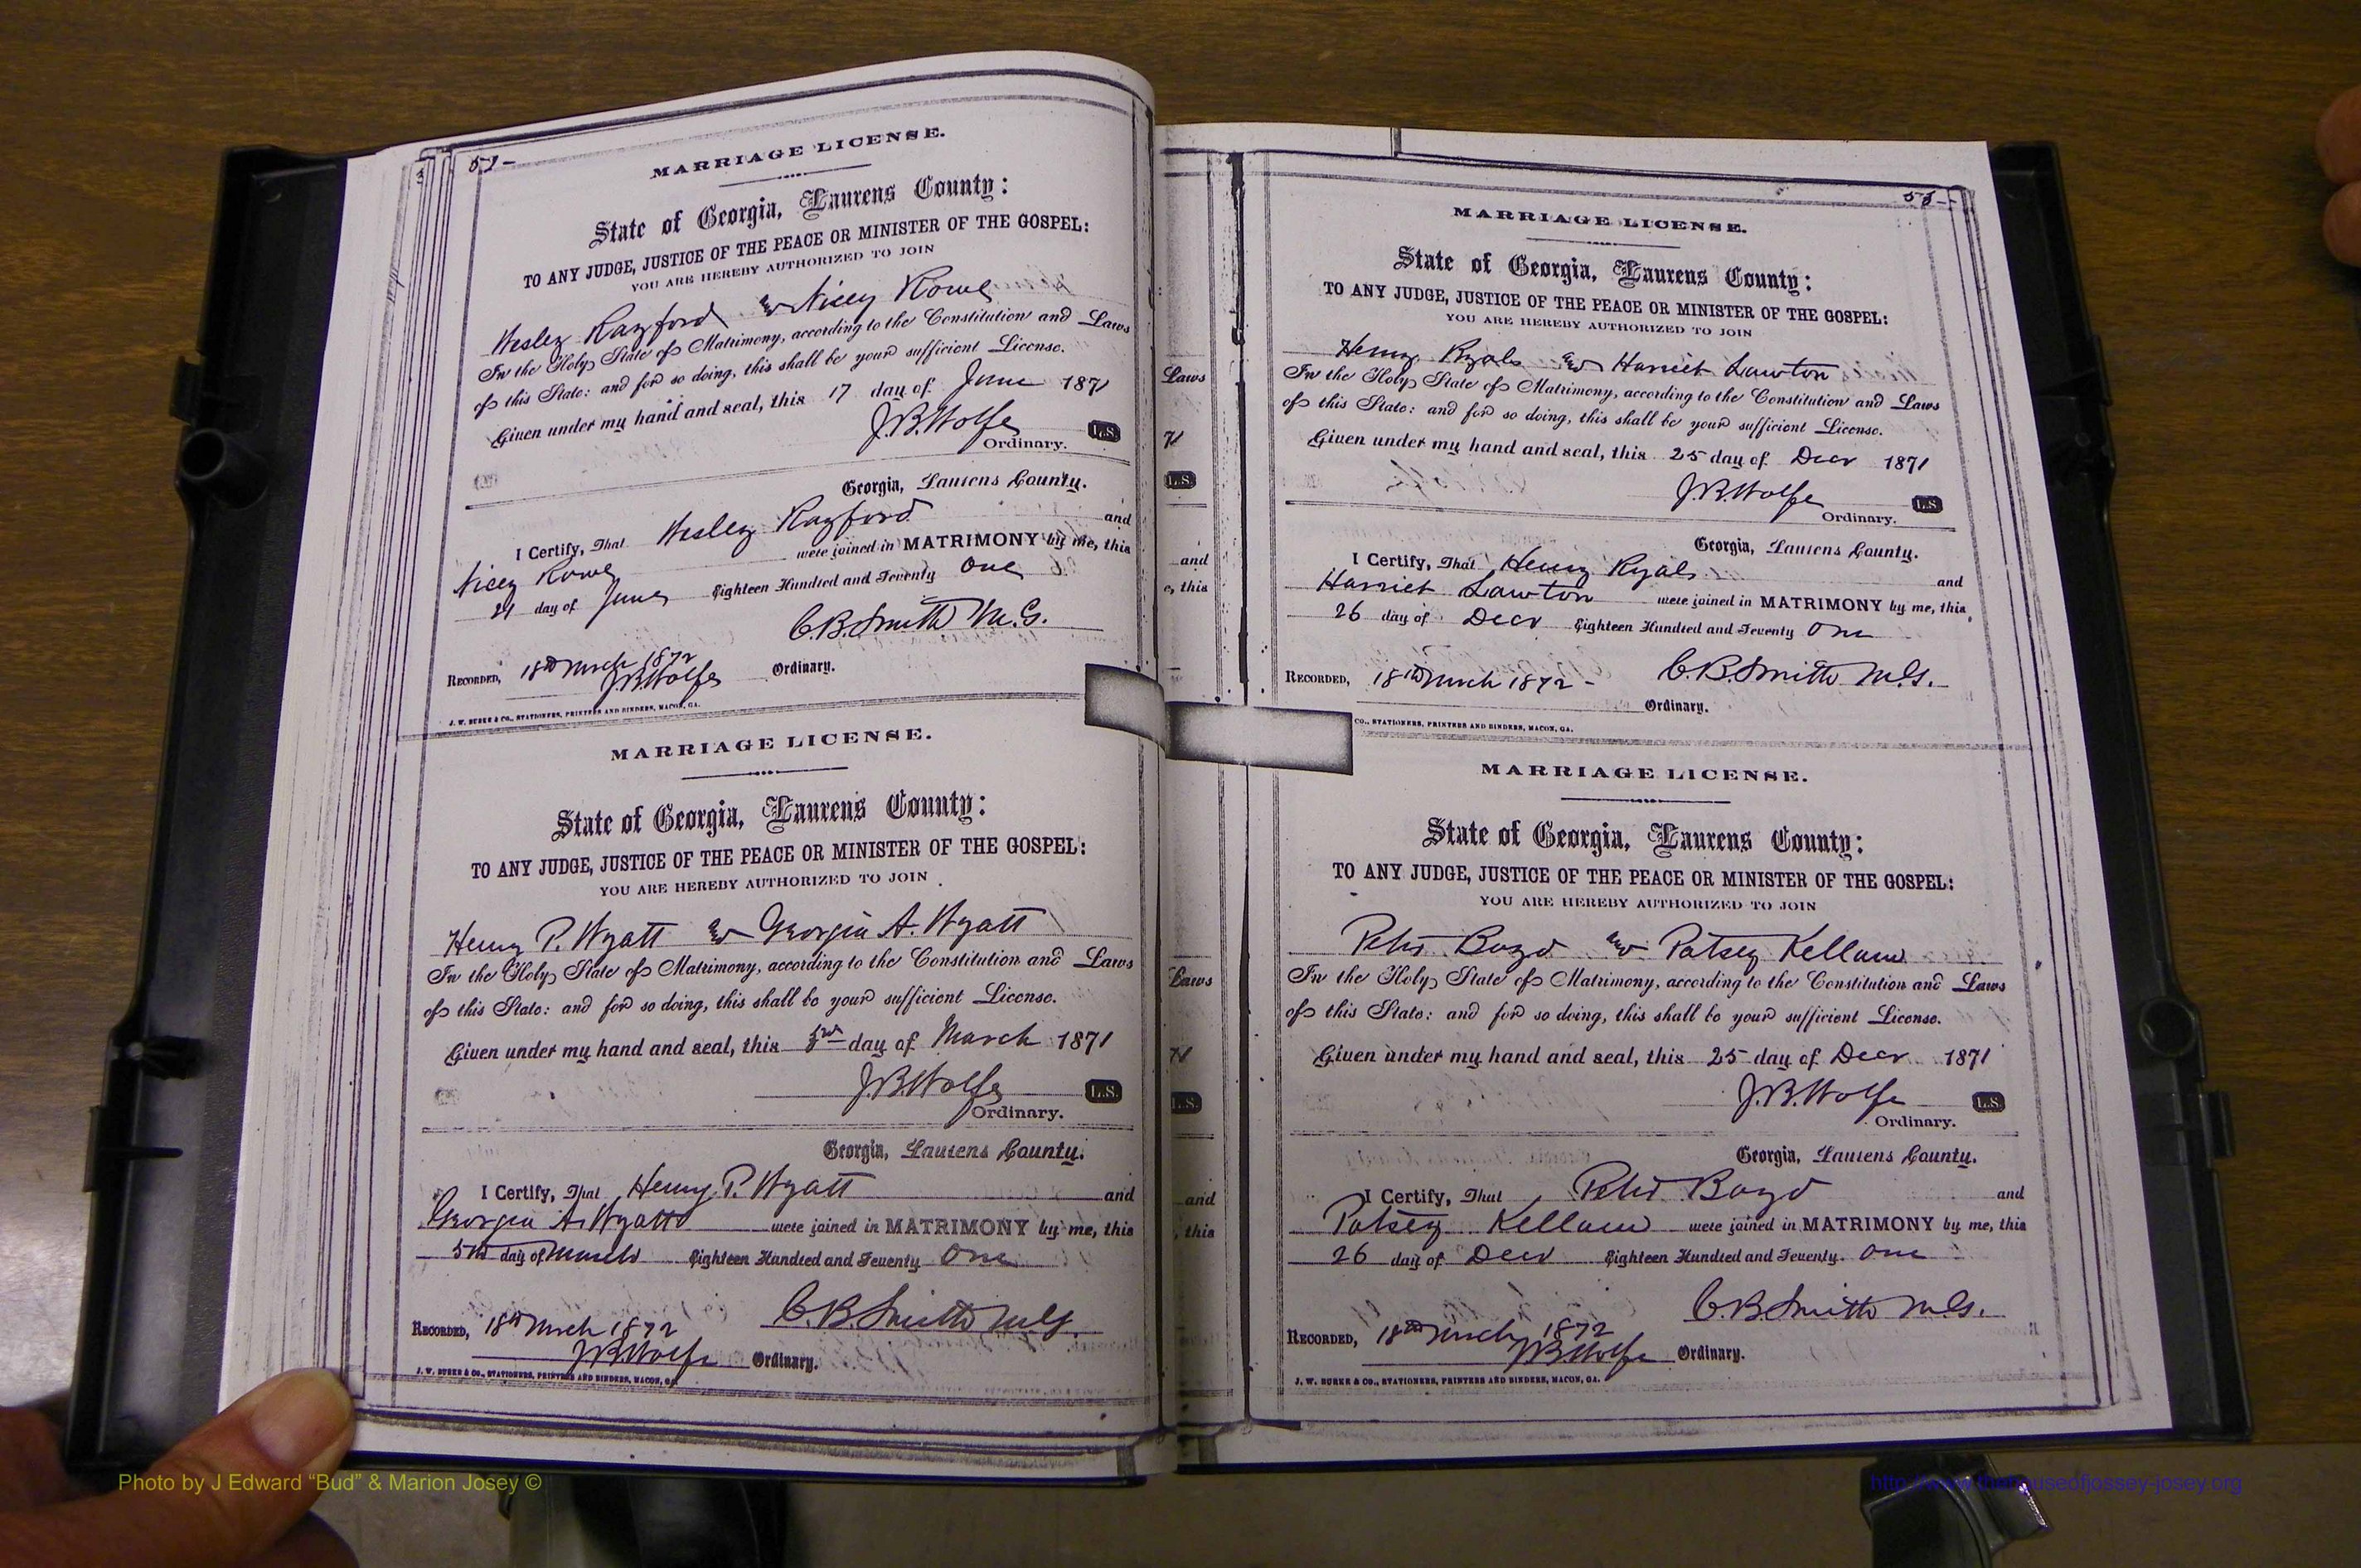 MARRIAGE LICENSE.
State of Georgia, Laurens County:
TO ANY JUDGE, JUSTICE OF THE PEACE OR MINISTER OF THE GOSPEL:
YOU ARE HEREBY AUTHORIZED TO JOIN
Wesley Rayford & Nicey Rowe
In the Holy State of Matrimony, according to the Constitution and Laws
of this State: and for so doing, this shall be your sufficient License.
Given under my hand and seal, this 17 day of June 1871
J.B. Wolfe L.S.
Ordinary.
Georgia, Laurens County.
I Certify, That Wesley Rayford and
Nicey Rowe were joined in MATRIMONY by me, this
21 day of June Eighteen Hundred and Seventy One
C.B. Smith M.G.
RECORDED, 18th March 1872
J.B. Wolfe Ordinary.
J. W. BURKE & CO., STATIONERS, PRINTERS AND BINDERS, MACON, GA.
MARRIAGE LICENSE.
State of Georgia, Laurens County:
TO ANY JUDGE, JUSTICE OF THE PEACE OR MINISTER OF THE GOSPEL:
YOU ARE HEREBY AUTHORIZED TO JOIN
Henry P. Wyatt & Georgia A. Wyatt
In the Holy State of Matrimony, according to the Constitution and Laws
of this State: and for so doing, this shall be your sufficient License.
Given under my hand and seal, this 3rd day of March 1871
J.B. Wolfe L.S.
Ordinary.
Georgia, Laurens County.
I Certify, That Henry P. Wyatt and
Georgia A. Wyatt were joined in MATRIMONY by me, this
5th day of March Eighteen Hundred and Seventy One
C.B. Smith M.G.
RECORDED, 18th March 1872
J.B. Wolfe Ordinary.
J. W. BURKE & CO., STATIONERS, PRINTERS AND BINDERS, MACON, GA.
Laws
71
L.S.
and
this
Laws
71
L.S.
and
, this
MARRIAGE LICENSE.
State of Georgia, Laurens County:
TO ANY JUDGE, JUSTICE OF THE PEACE OR MINISTER OF THE GOSPEL:
YOU ARE HEREBY AUTHORIZED TO JOIN
Henry Ryals & Harriet Lawton
In the Holy State of Matrimony, according to the Constitution and Laws
of this State: and for so doing, this shall be your sufficient License.
Given under my hand and seal, this 25 day of Decr 1871
J.B. Wolfe L.S.
Ordinary.
Georgia, Laurens County.
I Certify, That Henry Ryals and
Harriet Lawton were joined in MATRIMONY by me, this
26 day of Decr Eighteen Hundred and Seventy One
C.B. Smith M.G.
RECORDED, 18th March 1872 -
Ordinary.
CO., STATIONERS, PRINTERS AND BINDERS, MACON, GA.
MARRIAGE LICENSE.
State of Georgia, Laurens County:
TO ANY JUDGE, JUSTICE OF THE PEACE OR MINISTER OF THE GOSPEL:
YOU ARE HEREBY AUTHORIZED TO JOIN
Peter Boyd & Patsey Kellam
In the Holy State of Matrimony, according to the Constitution and Laws
of this State: and for so doing, this shall be your sufficient License.
Given under my hand and seal, this 25 day of Decr 1871
J.B. Wolfe L.S.
Ordinary.
Georgia, Laurens County.
I Certify, That Peter Boyd and
Patsey Kellam were joined in MATRIMONY by me, this
26 day of Decr Eighteen Hundred and Seventy One
C.B. Smith M.G.
RECORDED, 18th March 1872
J.B. Wolfe Ordinary.
J. W. BURKE & CO., STATIONERS, PRINTERS AND BINDERS, MACON, GA.
Photo by J Edward “Bud” & Marion Josey ©
http://www.thehouseofjossey-josey.org